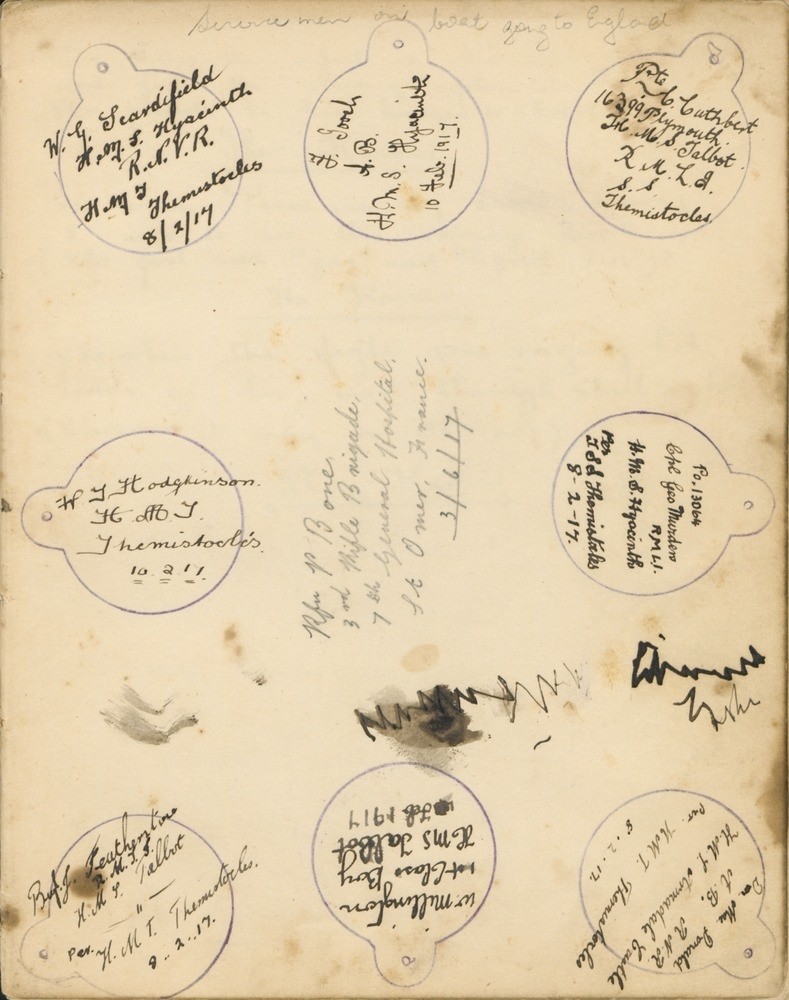 Service men on boat going to England
W. G. Scardifield
H.M.S. Hyacinth
R.N.V.R.
H M T Themistocles
8/2/17
F. Gooch
A.B.
H.M.S. Hyacinth
10 Feb. 1917.
Pte C. Cuthbert
16399 Plymouth.
H. M. S. Talbot
R M L I.
S. S
Themistocles
W J Hodgkinson.
H M T.
Themistocles.
10 2 17.
Rfn P Bone.
3rd Rifle Brigade,
7th General Hospital,
St Omer, France.
3/6/17
Po. 13064
Cpl Geo Murden
R M L I.
H. M. S. Hyacinth
Per
T S S Themistocles
8-2-17.
H.M.S. Talbot
"
per. H. M. T. Themistocles.
8..2..17.
W Millington
1st Class Boy
HMS Talbot
Feb 1917
Donald
A. B. R N R.
H.M.S Armadale Castle
per. H.M.T. Themistocles
8. 2. 17